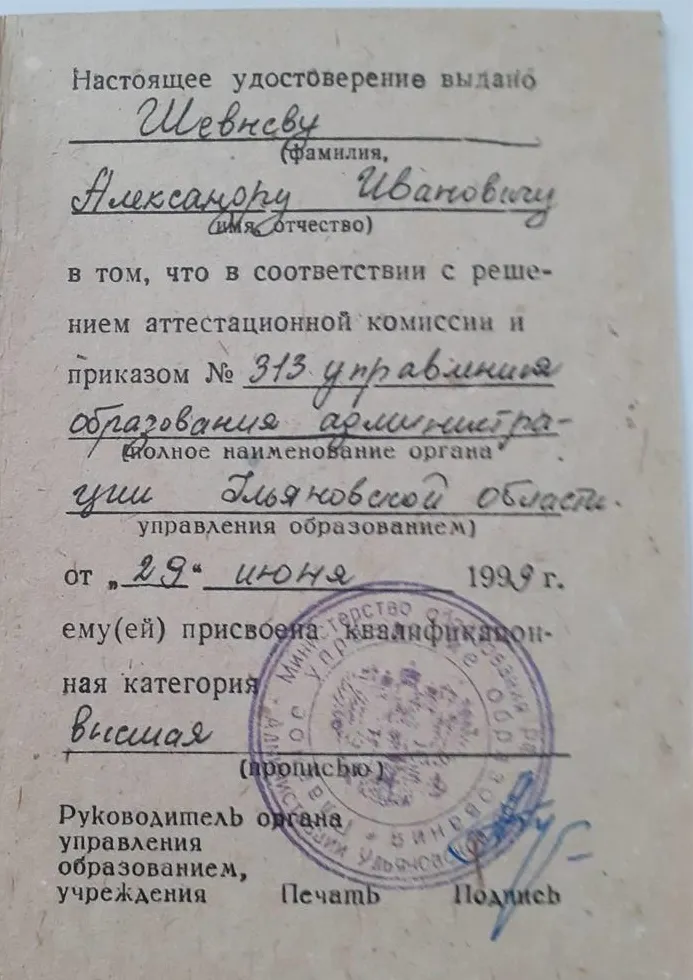 Настоящее удостоверение выдано
Шевневу
(фамилия,
Александру Ивановичу
имя, отчество)
в том, что в соответствии с реше-
нием аттестационной комиссии и
приказом № 313 управления
образования администра-
(полное наименование органа
ции Ульяновской области.
управления образованием)
от „29“ июня 1999 г.
ему(ей) присвоена квалификацион-
ная категория
высшая
(прописью)
Руководитель органа
управления
образованием,
учреждения Печать Подпись
Министерство образования
Администрации Ульяновской